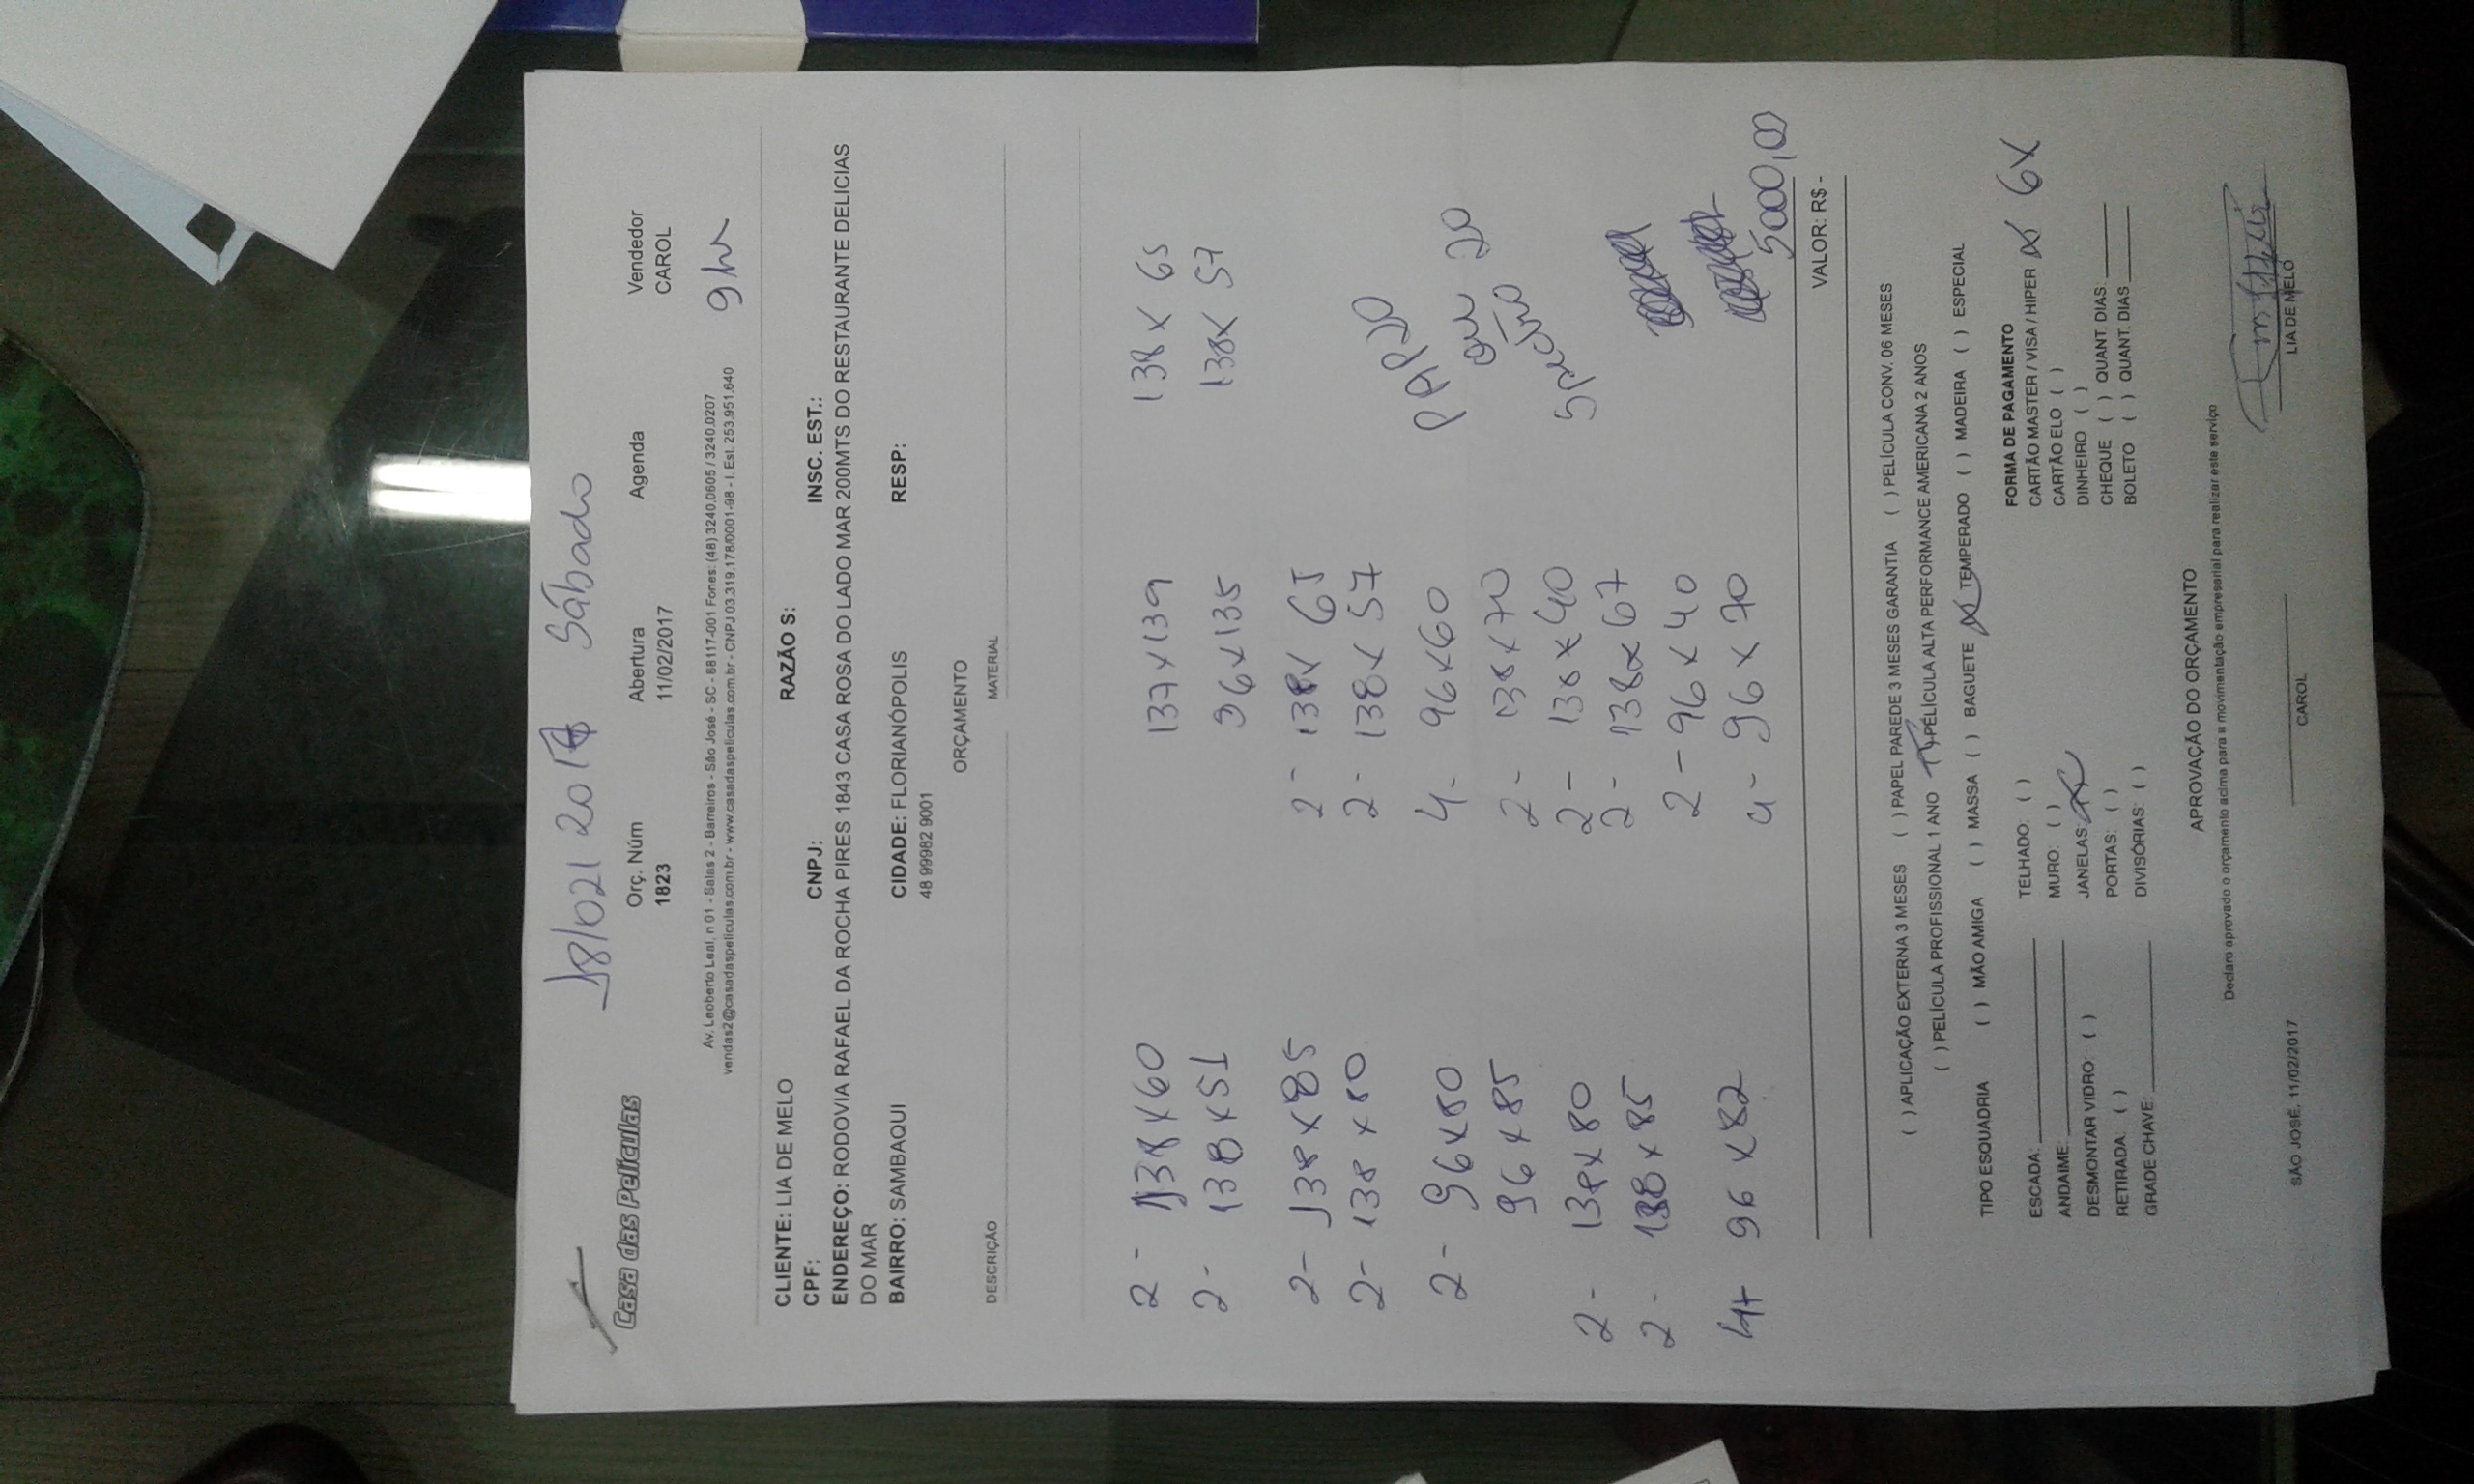 18/02/2017 Sábado
Casa das Películas
Orç. Núm Abertura Agenda Vendedor
1823 11/02/2017 CAROL
9hr
Av. Leoberto Leal, n 01 - Salas 2 - Barreiros - São José - SC - 88117-001 Fones: (48) 3240.0605 / 3240.0207
vendas2@casadaspeliculas.com.br - www.casadaspeliculas.com.br - CNPJ 03.319.178/0001-98 - I. Est. 253.951.640
CLIENTE: LIA DE MELO RAZÃO S:
CPF: CNPJ: INSC. EST.:
ENDEREÇO: RODOVIA RAFAEL DA ROCHA PIRES 1843 CASA ROSA DO LADO MAR 200MTS DO RESTAURANTE DELICIAS
DO MAR
BAIRRO: SAMBAQUI CIDADE: FLORIANÓPOLIS RESP:
48 99982 9001
ORÇAMENTO
DESCRIÇÃO MATERIAL
2- 138x60 137x139 138x65
2- 138x51 96x135 138x57
2- 138x85 2- 138x65
2- 138x80 2- 138x57
2- 96x80 4- 96x60 PAP20
96x85 2- 138x70 ou 20
2- 138x80 2- 138x40
2- 138x85 2- 138x67
2-96x40
4+ 96x82 4- 96x70
5000,00
VALOR: R$ -
( ) APLICAÇÃO EXTERNA 3 MESES ( ) PAPEL PAREDE 3 MESES GARANTIA ( ) PELÍCULA CONV. 06 MESES
( ) PELÍCULA PROFISSIONAL 1 ANO (X) PELÍCULA ALTA PERFORMANCE AMERICANA 2 ANOS
TIPO ESQUADRIA ( ) MÃO AMIGA ( ) MASSA ( ) BAGUETE (X) TEMPERADO ( ) MADEIRA ( ) ESPECIAL
ESCADA: TELHADO: ( )
ANDAIME: MURO: ( )
DESMONTAR VIDRO: ( ) JANELAS: (X)
RETIRADA: ( ) PORTAS: ( )
GRADE CHAVE: DIVISÓRIAS: ( )
FORMA DE PAGAMENTO
CARTÃO MASTER / VISA / HIPER (X) 6X
CARTÃO ELO ( )
DINHEIRO ( )
CHEQUE ( ) QUANT. DIAS:
BOLETO ( ) QUANT. DIAS
APROVAÇÃO DO ORÇAMENTO
Declaro aprovado o orçamento acima para a movimentação empresarial para realizar este serviço
SÃO JOSÉ, 11/02/2017 CAROL LIA DE MELO